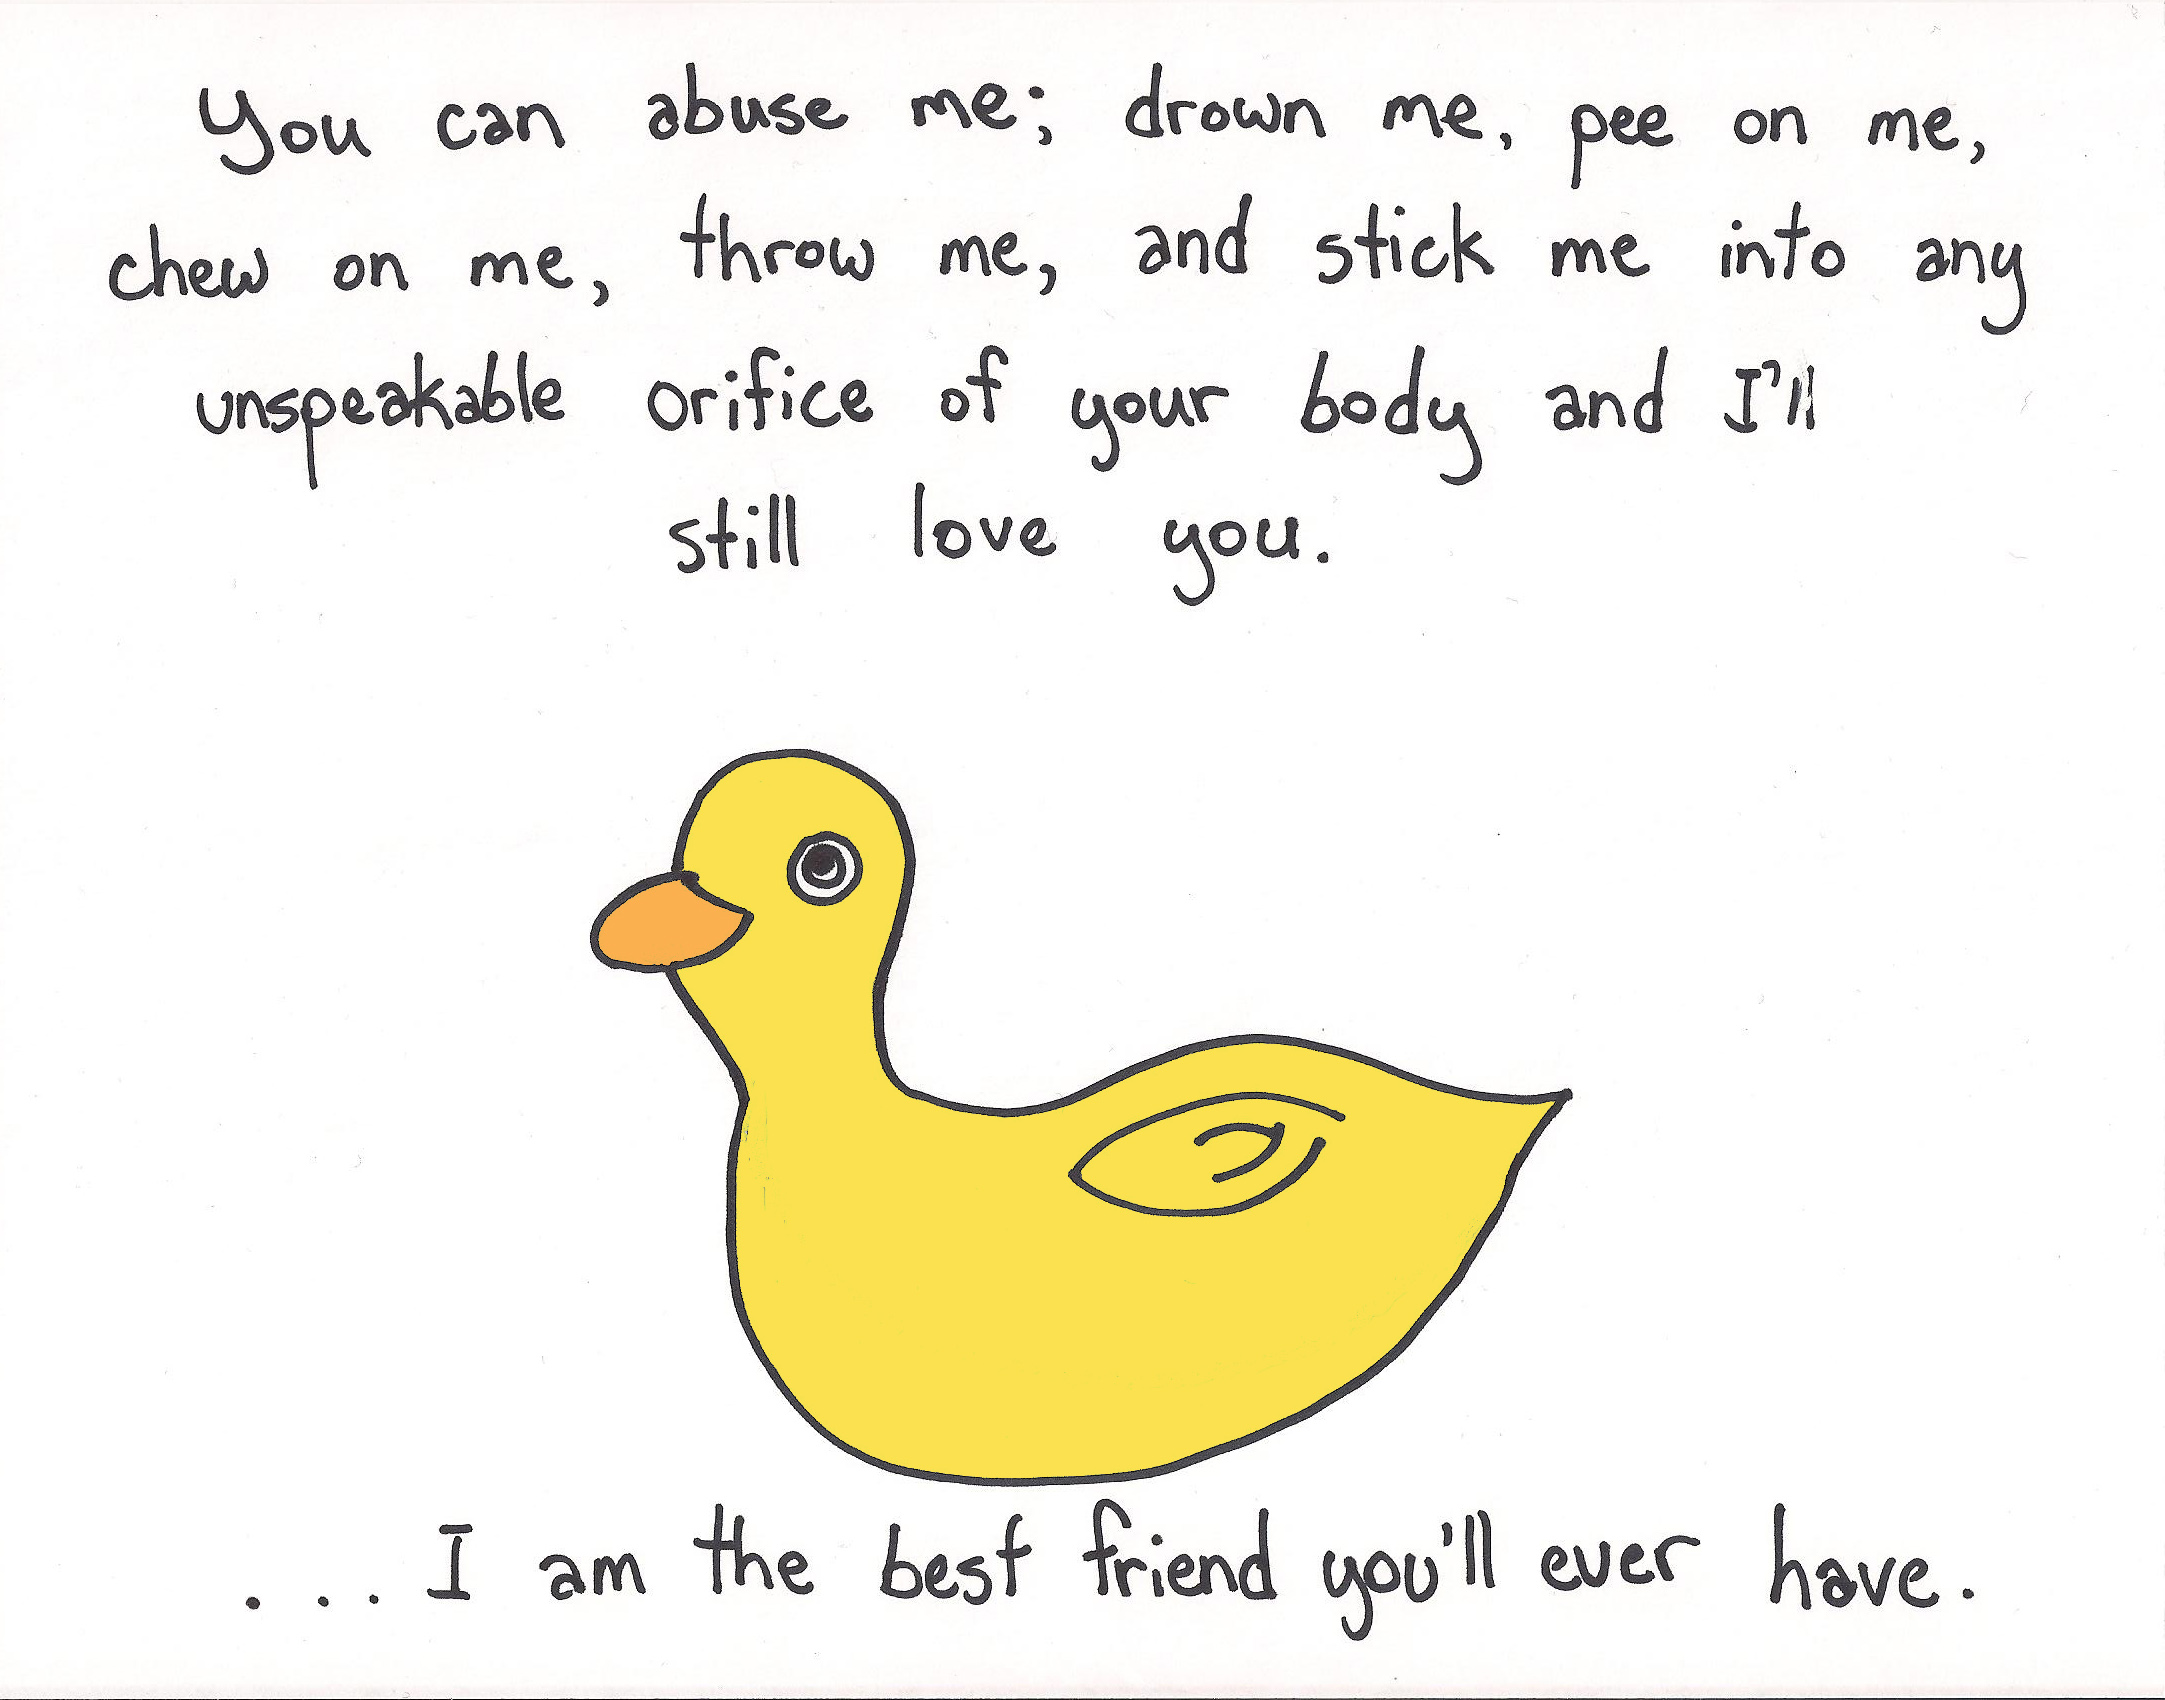 You can abuse me; drown me, pee on me,
chew on me, throw me, and stick me into any
unspeakable orifice of your body and I'll
still love you.
...I am the best friend you'll ever have.